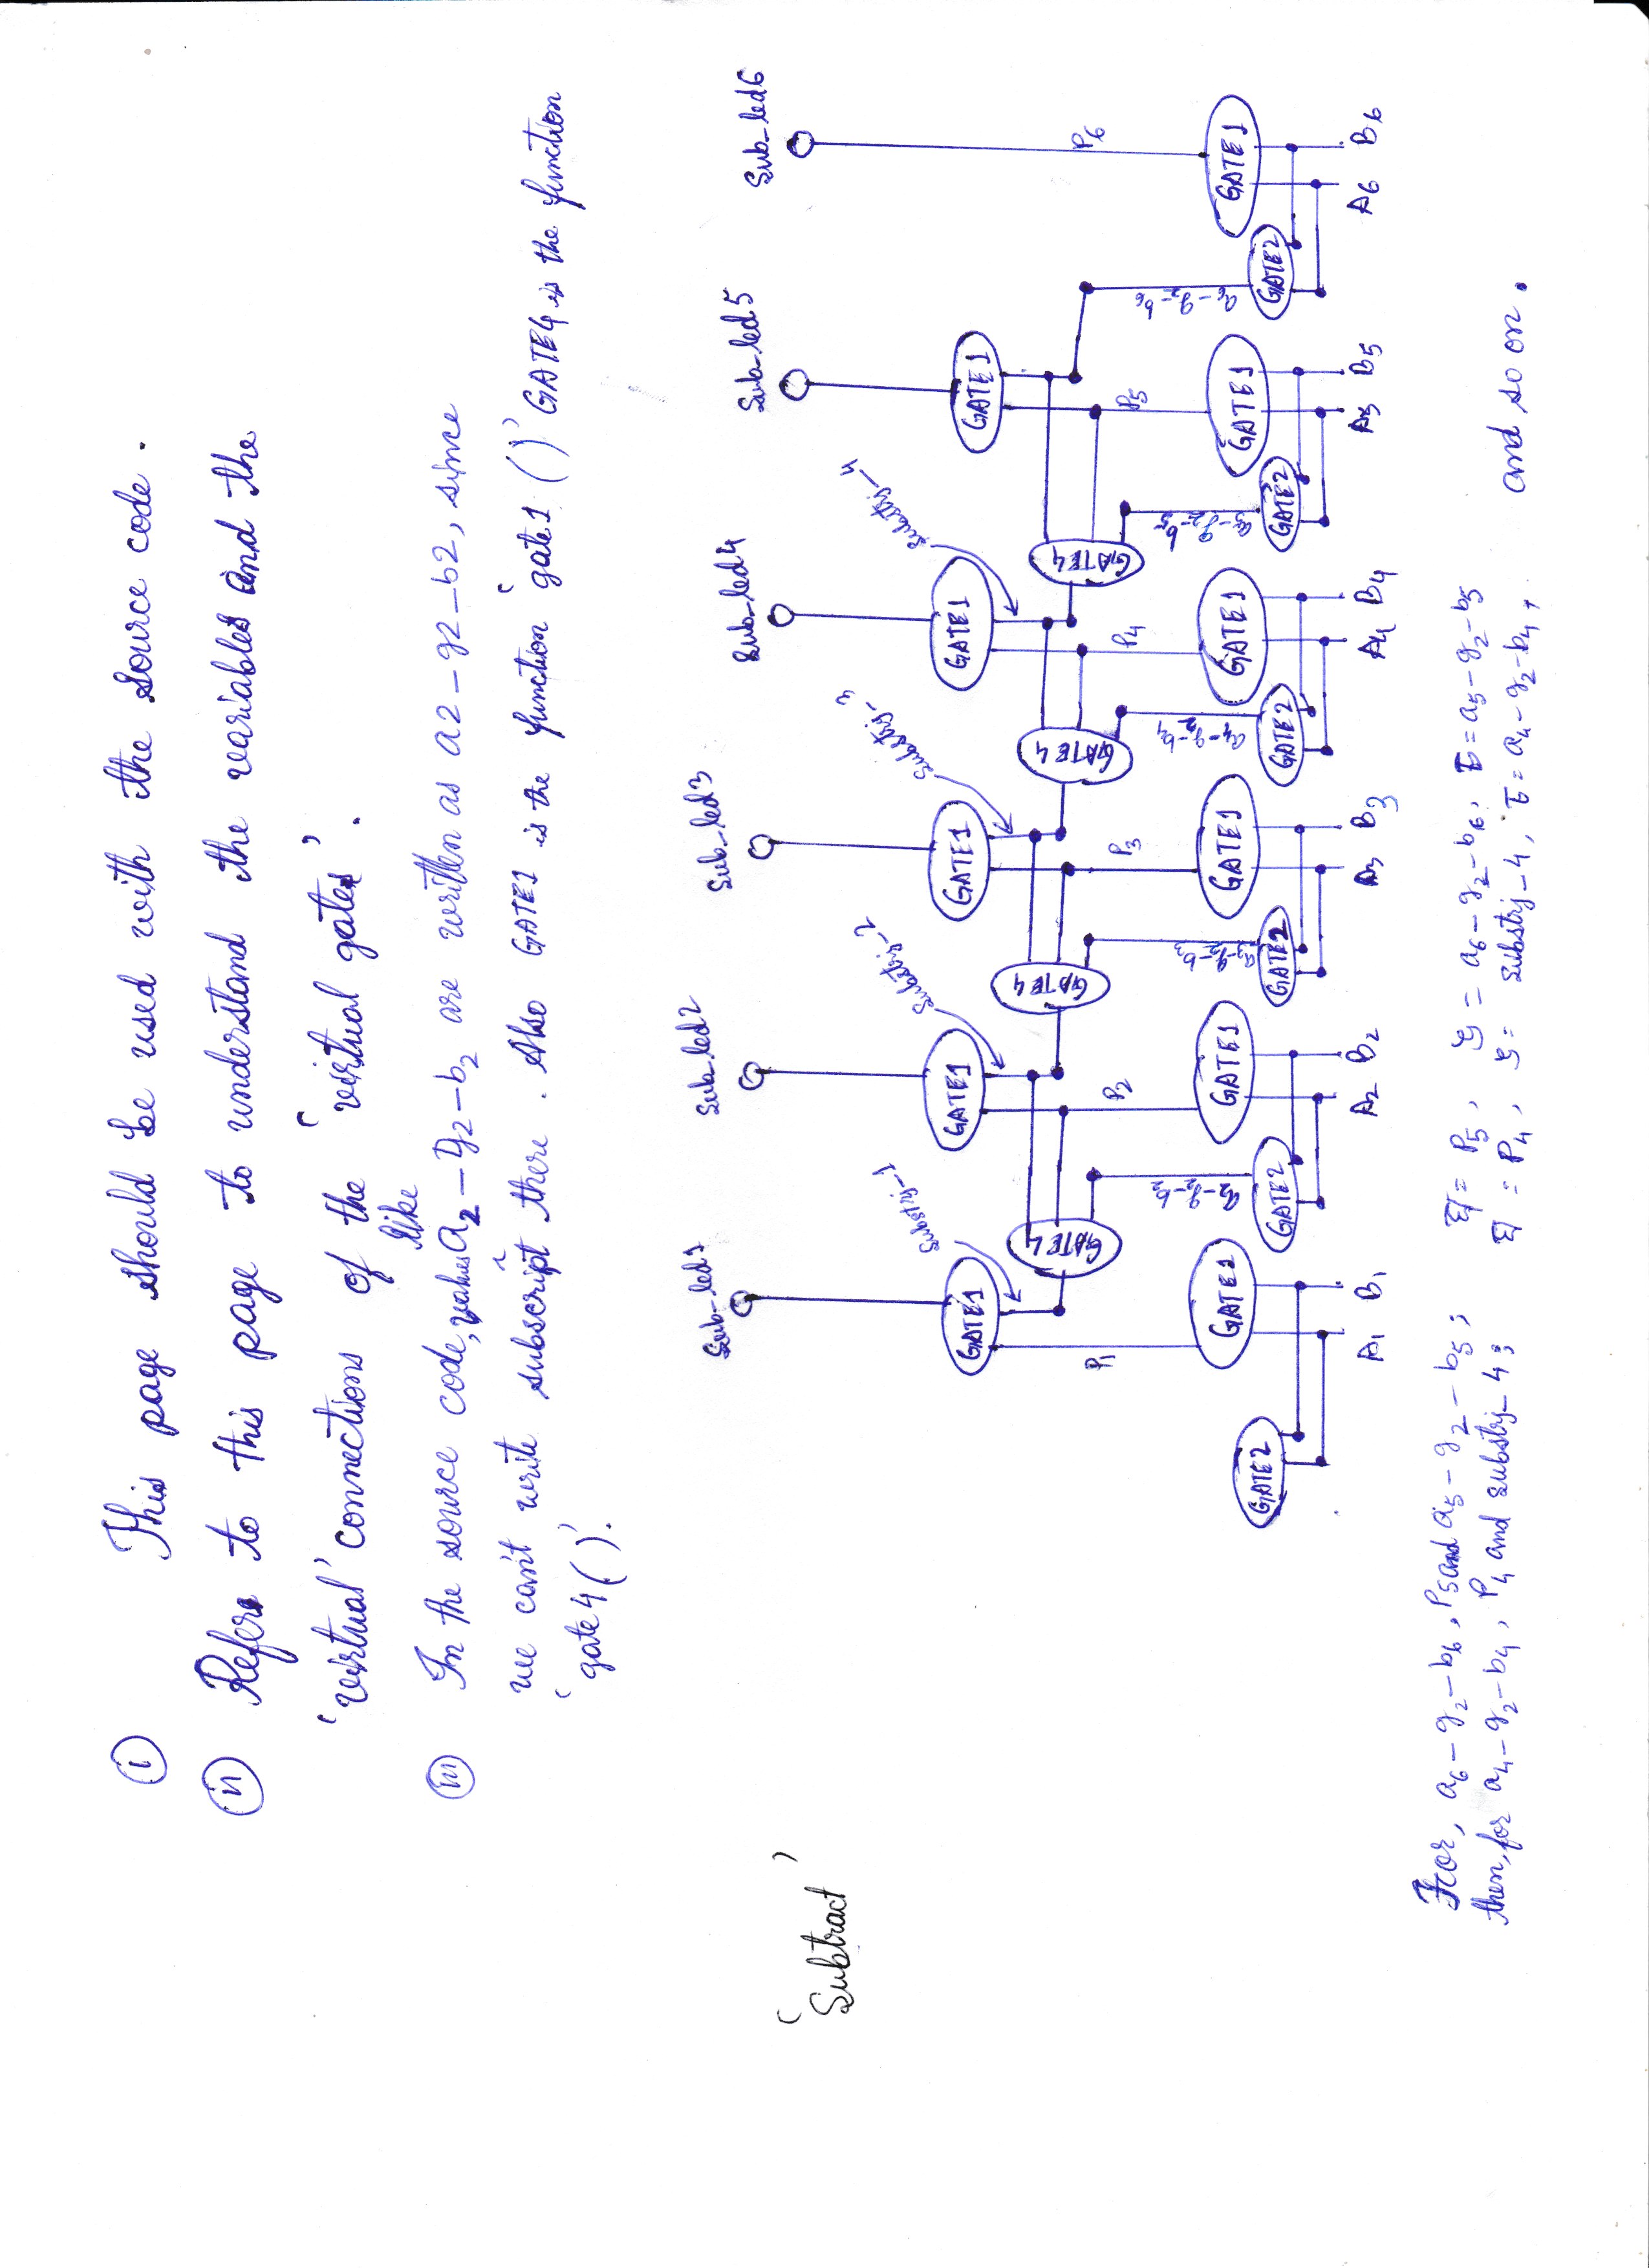 (i) This page should be used with the source code.
(ii) Refer to this page to understand the variables and the
'virtual' connections of the 'virtual gates'.
(iii) In the source code, values like a2-g2-b2 are written as a2-g2-b2, since
we can't write subscript there. Also GATE1 is the function 'gate1()' GATE4 is the function
'gate4()'.
'Subtract'
Sub_led1 Sub_led2 Sub_led3 Sub_led4 Sub_led5 Sub_led6
substrj-1 substrj-2 substrj-3 substrj-4
GATE1 GATE1 GATE1 GATE1 GATE1
GATE4 GATE4 GATE4 GATE4
P1 P2 P3 P4 P5 P6
a2-g2-b2 a3-g2-b3 a4-g2-b4 a5-g2-b5 a6-g2-b6
GATE2 GATE1 GATE2 GATE1 GATE2 GATE1 GATE2 GATE1 GATE2 GATE1 GATE2 GATE1
A1 B1 A2 B2 A3 B3 A4 B4 A5 B5 A6 B6
For, a6-g2-b6, P5 and a5-g2-b5; = P5, = a6-g2-b6, = a5-g2-b5
then, for a4-g2-b4, P4 and substrj-4; = P4, = substrj-4, = a4-g2-b4,
and so on.